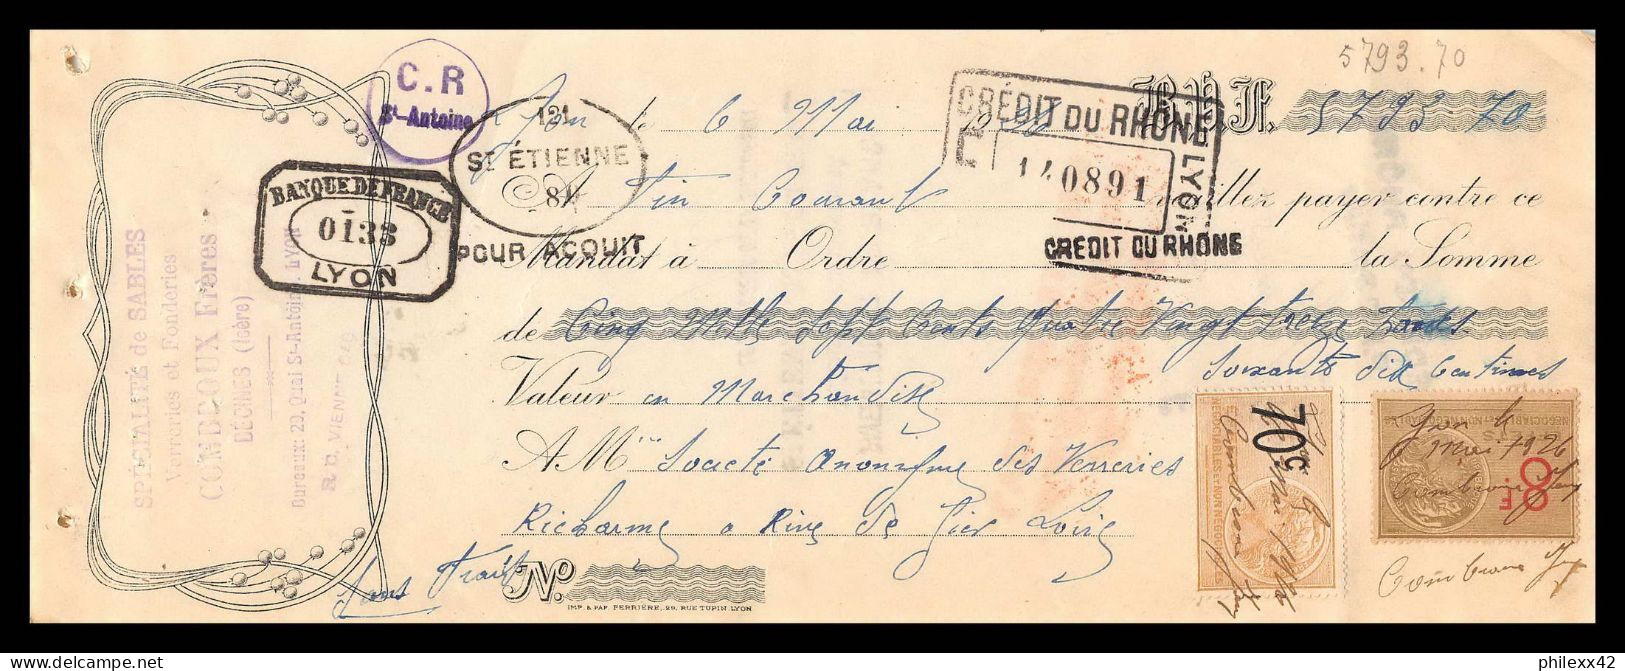 5793.70
C.R
St-Antoine
B.P.F. 5793-70
Lyon le 6 Mai
121
ST ÉTIENNE
81
CRÉDIT DU RHONE LYON
140891
CREDIT DU RHÔNE
BANQUE DE FRANCE
0133
LYON
POUR ACQUIT
Fin Courant veuillez payer contre ce
Mandat à Ordre la Somme
de Cinq Mille Sept Cents Quatre Vingt treize francs
Soixante dix Centimes
Valeur en Marchandise
A Mr Société Anonyme des Verreries
Richarme a Rive de Gier Loire
Sans frais
No.
IMP. & PAP. FERRIÈRE, 29, RUE TUPIN. LYON
SPÉCIALITÉ de SABLES
Verreries et Fonderies
COMBROUX Frères
DÉCINES (Isère)
Bureaux: 23, Quai St-Antoine, LYON
R. C. VIENNE
70c
NÉGOCIABLES ET NON NÉGOCIABLES
8F
Lyon le
6 Mai 1926
Combroux
Combroux
philexx42